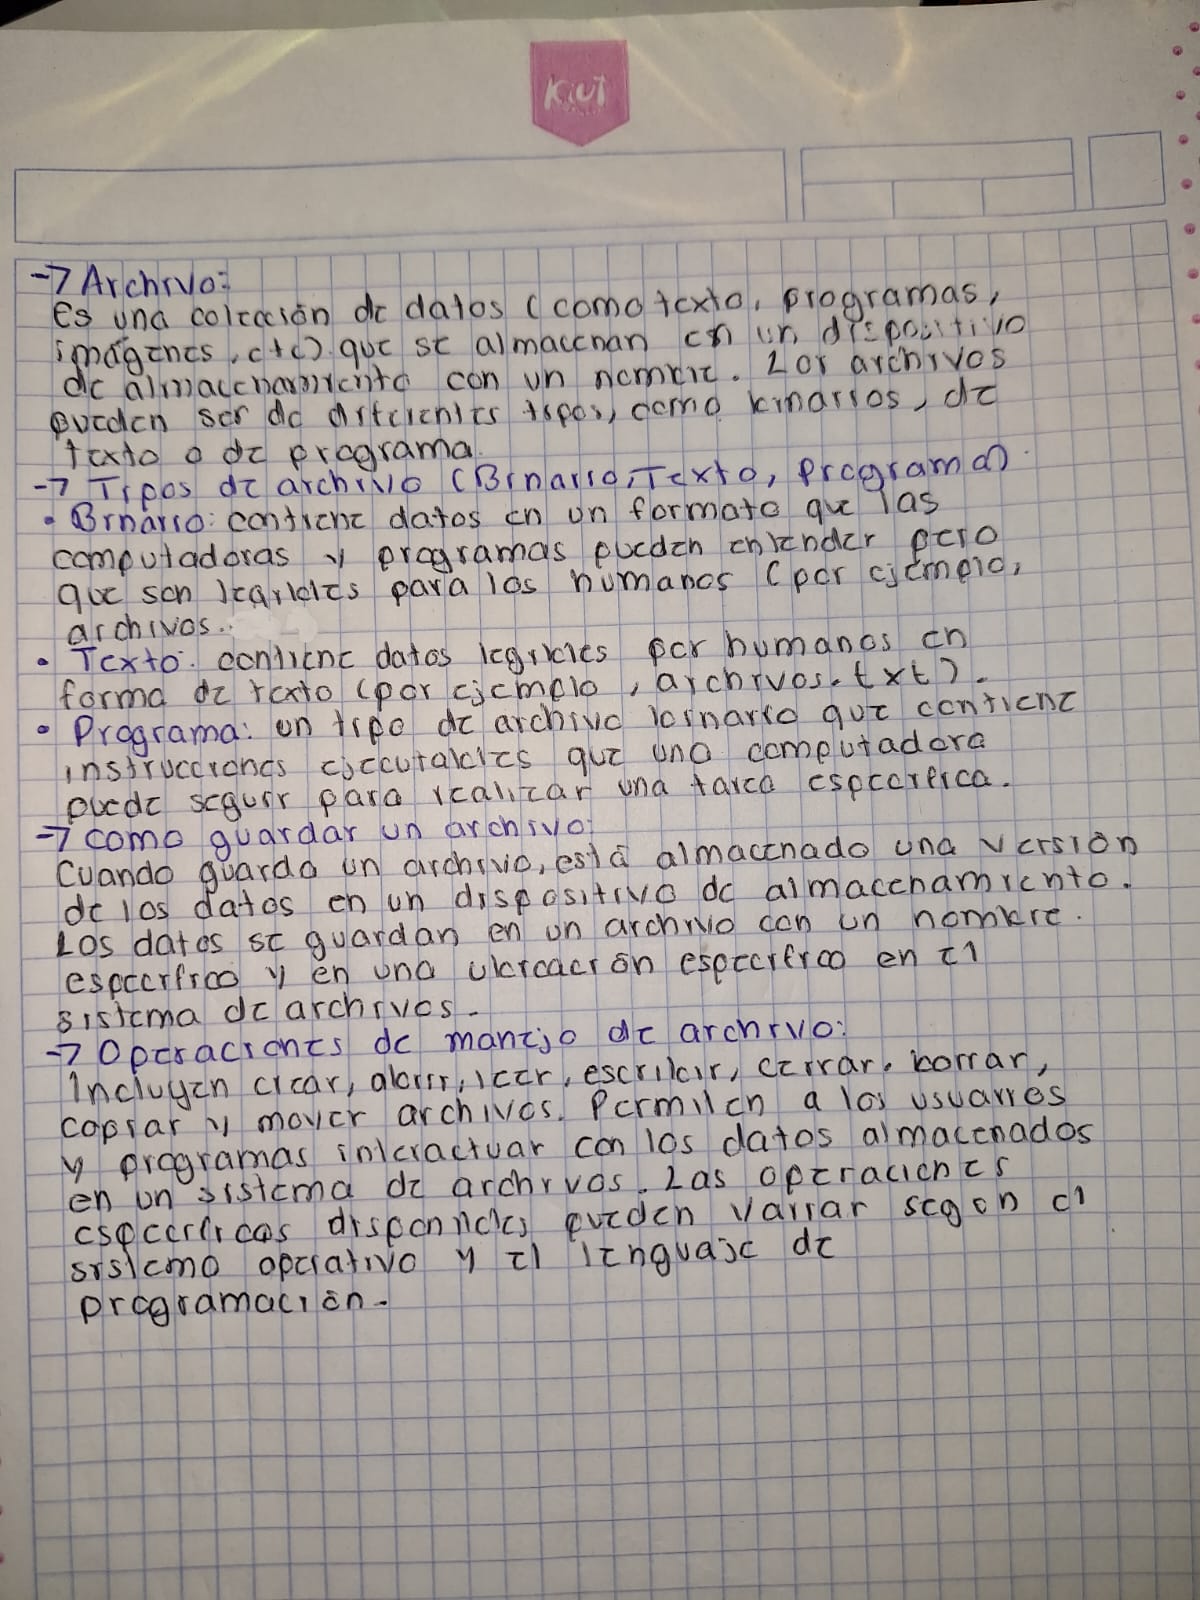 Kiut
→ Archivo:
Es una colección de datos (como texto, programas,
imágenes, etc). que se almacenan en un dispositivo
de almacenamiento con un nombre. Los archivos
pueden ser de diferentes tipos, como binarios, de
texto o de programa.
→ Tipos de archivo (Binario, Texto, programa).
• Binario: contiene datos en un formato que las
computadoras y programas pueden entender pero
que son legibles para los humanos (por ejemplo,
archivos.
• Texto: contiene datos legibles por humanos en
forma de texto (por ejemplo, archivos.txt).
• Programa: un tipo de archivo binario que contiene
instrucciones ejecutables que una computadora
puede seguir para realizar una tarea especifica.
→ como guardar un archivo:
Cuando guarda un archivo, está almacenado una versión
de los datos en un dispositivo de almacenamiento.
Los datos se guardan en un archivo con un nombre.
especifico y en una ubicación especifico en el
sistema de archivos.
→ Operaciones de manejo de archivo:
Incluyen crear, abrir, leer, escribir, cerrar, borrar,
copiar y mover archivos. Permiten a los usuarios
y programas interactuar con los datos almacenados
en un sistema de archivos. Las operaciones
especificas disponibles pueden variar segun el
sistema operativo y el lenguaje de
programación.